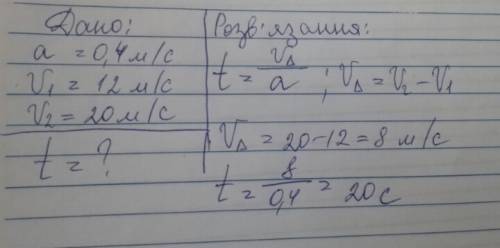 Дано:
a = 0,4 м/с
V₁ = 12 м/с
V₂ = 20 м/с
t = ?
Розв'язання:
t = V∆/a ; V∆ = V₂ - V₁
V∆ = 20 - 12 = 8 м/с
t = 8/0,4 = 20 с